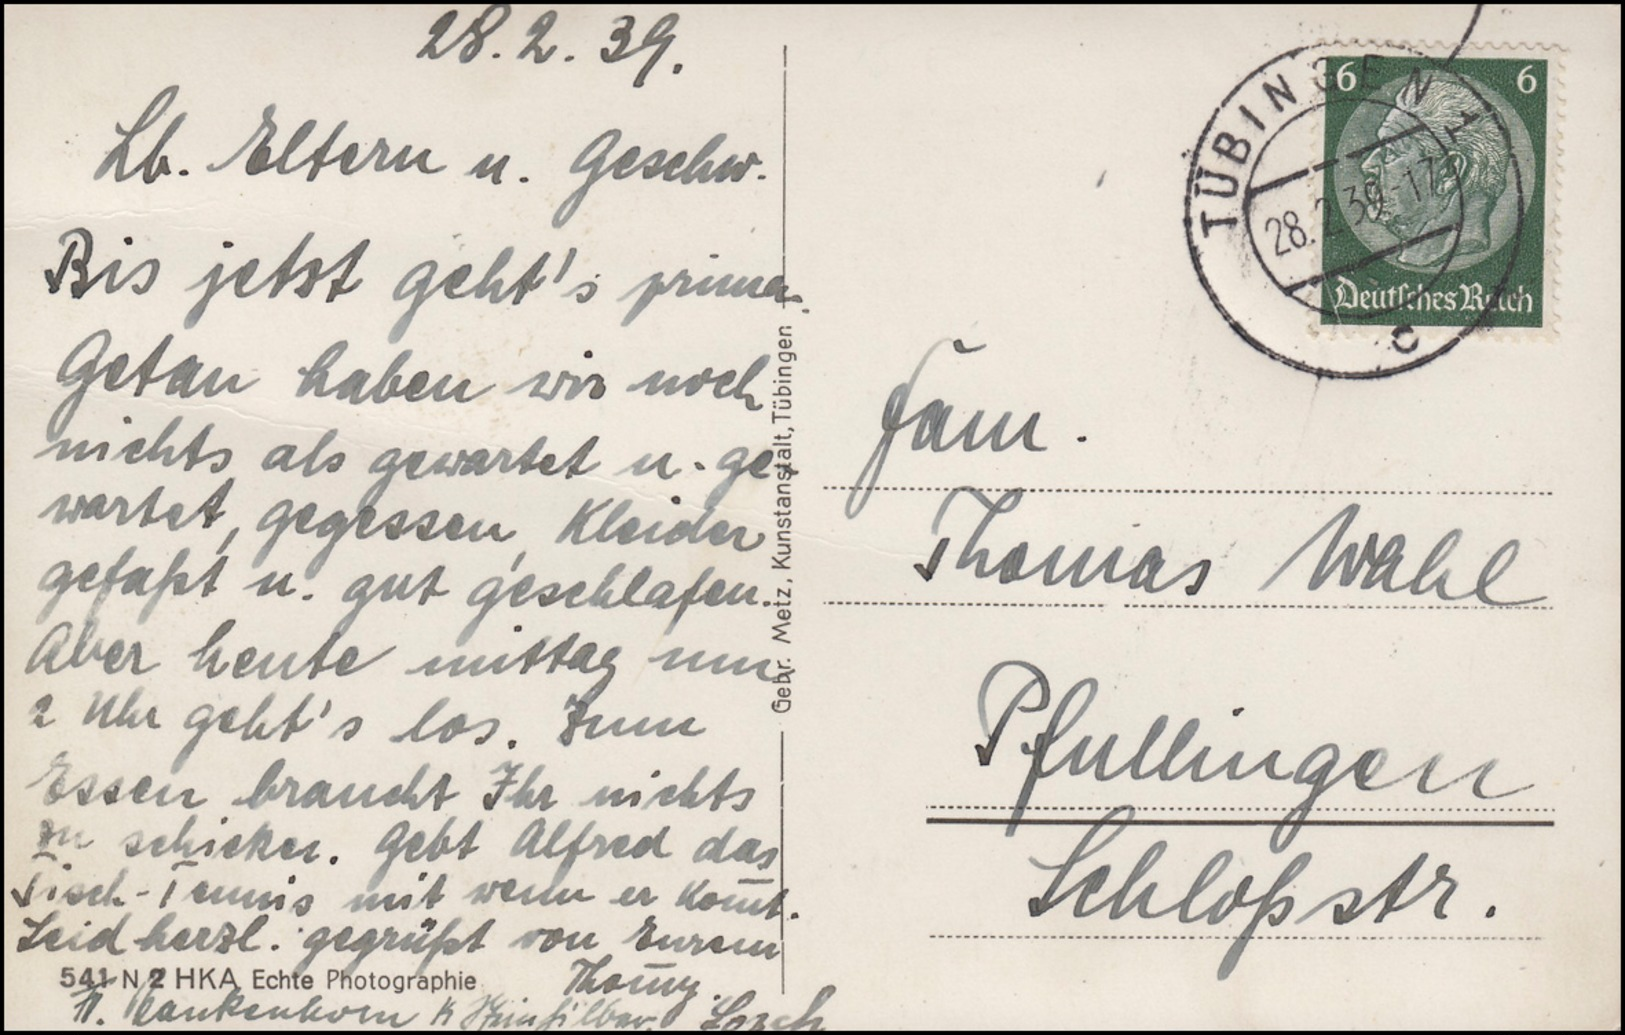 28.2.39.
Lb. Eltern u. Geschw.
Bis jetzt geht's prima.
Getan haben wir noch
nichts als gewartet u. ge
wartet, gegessen, Kleider
gefaßt u. gut geschlafen.
Aber heute mittag um
2 Uhr geht's los. Zum
Essen braucht Ihr nichts
zu schicken. Gebt Alfred das
Tisch-Tennis mit wenn er kom̅t.
Seid herzl. gegrüßt von Eurem
Thomy.
541 N 2 HKA Echte Photographie
Gebr. Metz, Kunstanstalt, Tübingen
TÜBINGEN 1
28.2.39.-17
c
6 6
Deutsches Reich
Fam.
Thomas Wahl
Pfullingen
Schloßstr.